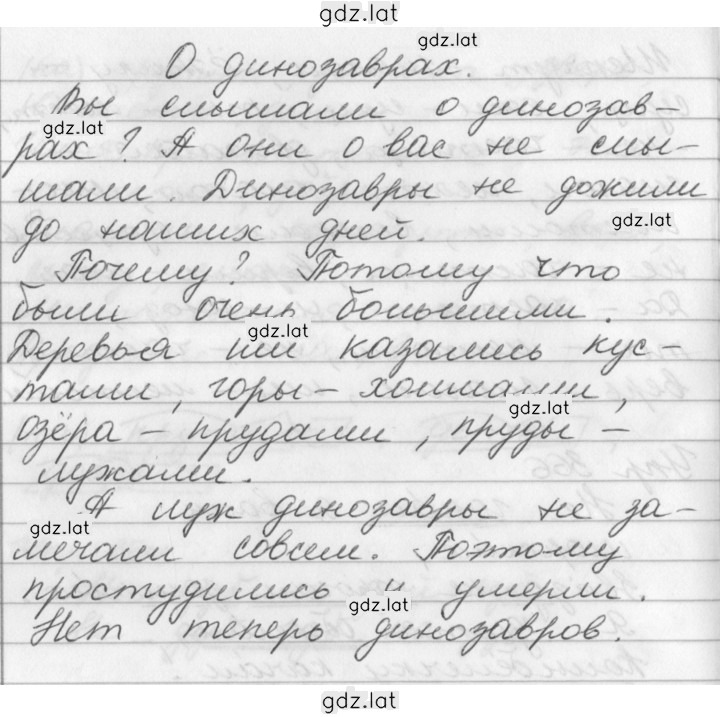 gdz.lat
gdz.lat
О динозаврах.
Вы слышали о динозав-
gdz.lat
рах? А они о вас не слы-
шали. Динозавры не дожили
gdz.lat
до наших дней.
Почему? Потому что
были очень большими.
gdz.lat
Деревья им казались кус-
тами, горы - холмами,
gdz.lat
озёра - прудами, пруды -
лужами.
А луж динозавры не за-
gdz.lat
мечали совсем. Поэтому
простудились и умерли.
gdz.lat
Нет теперь динозавров.
gdz.lat